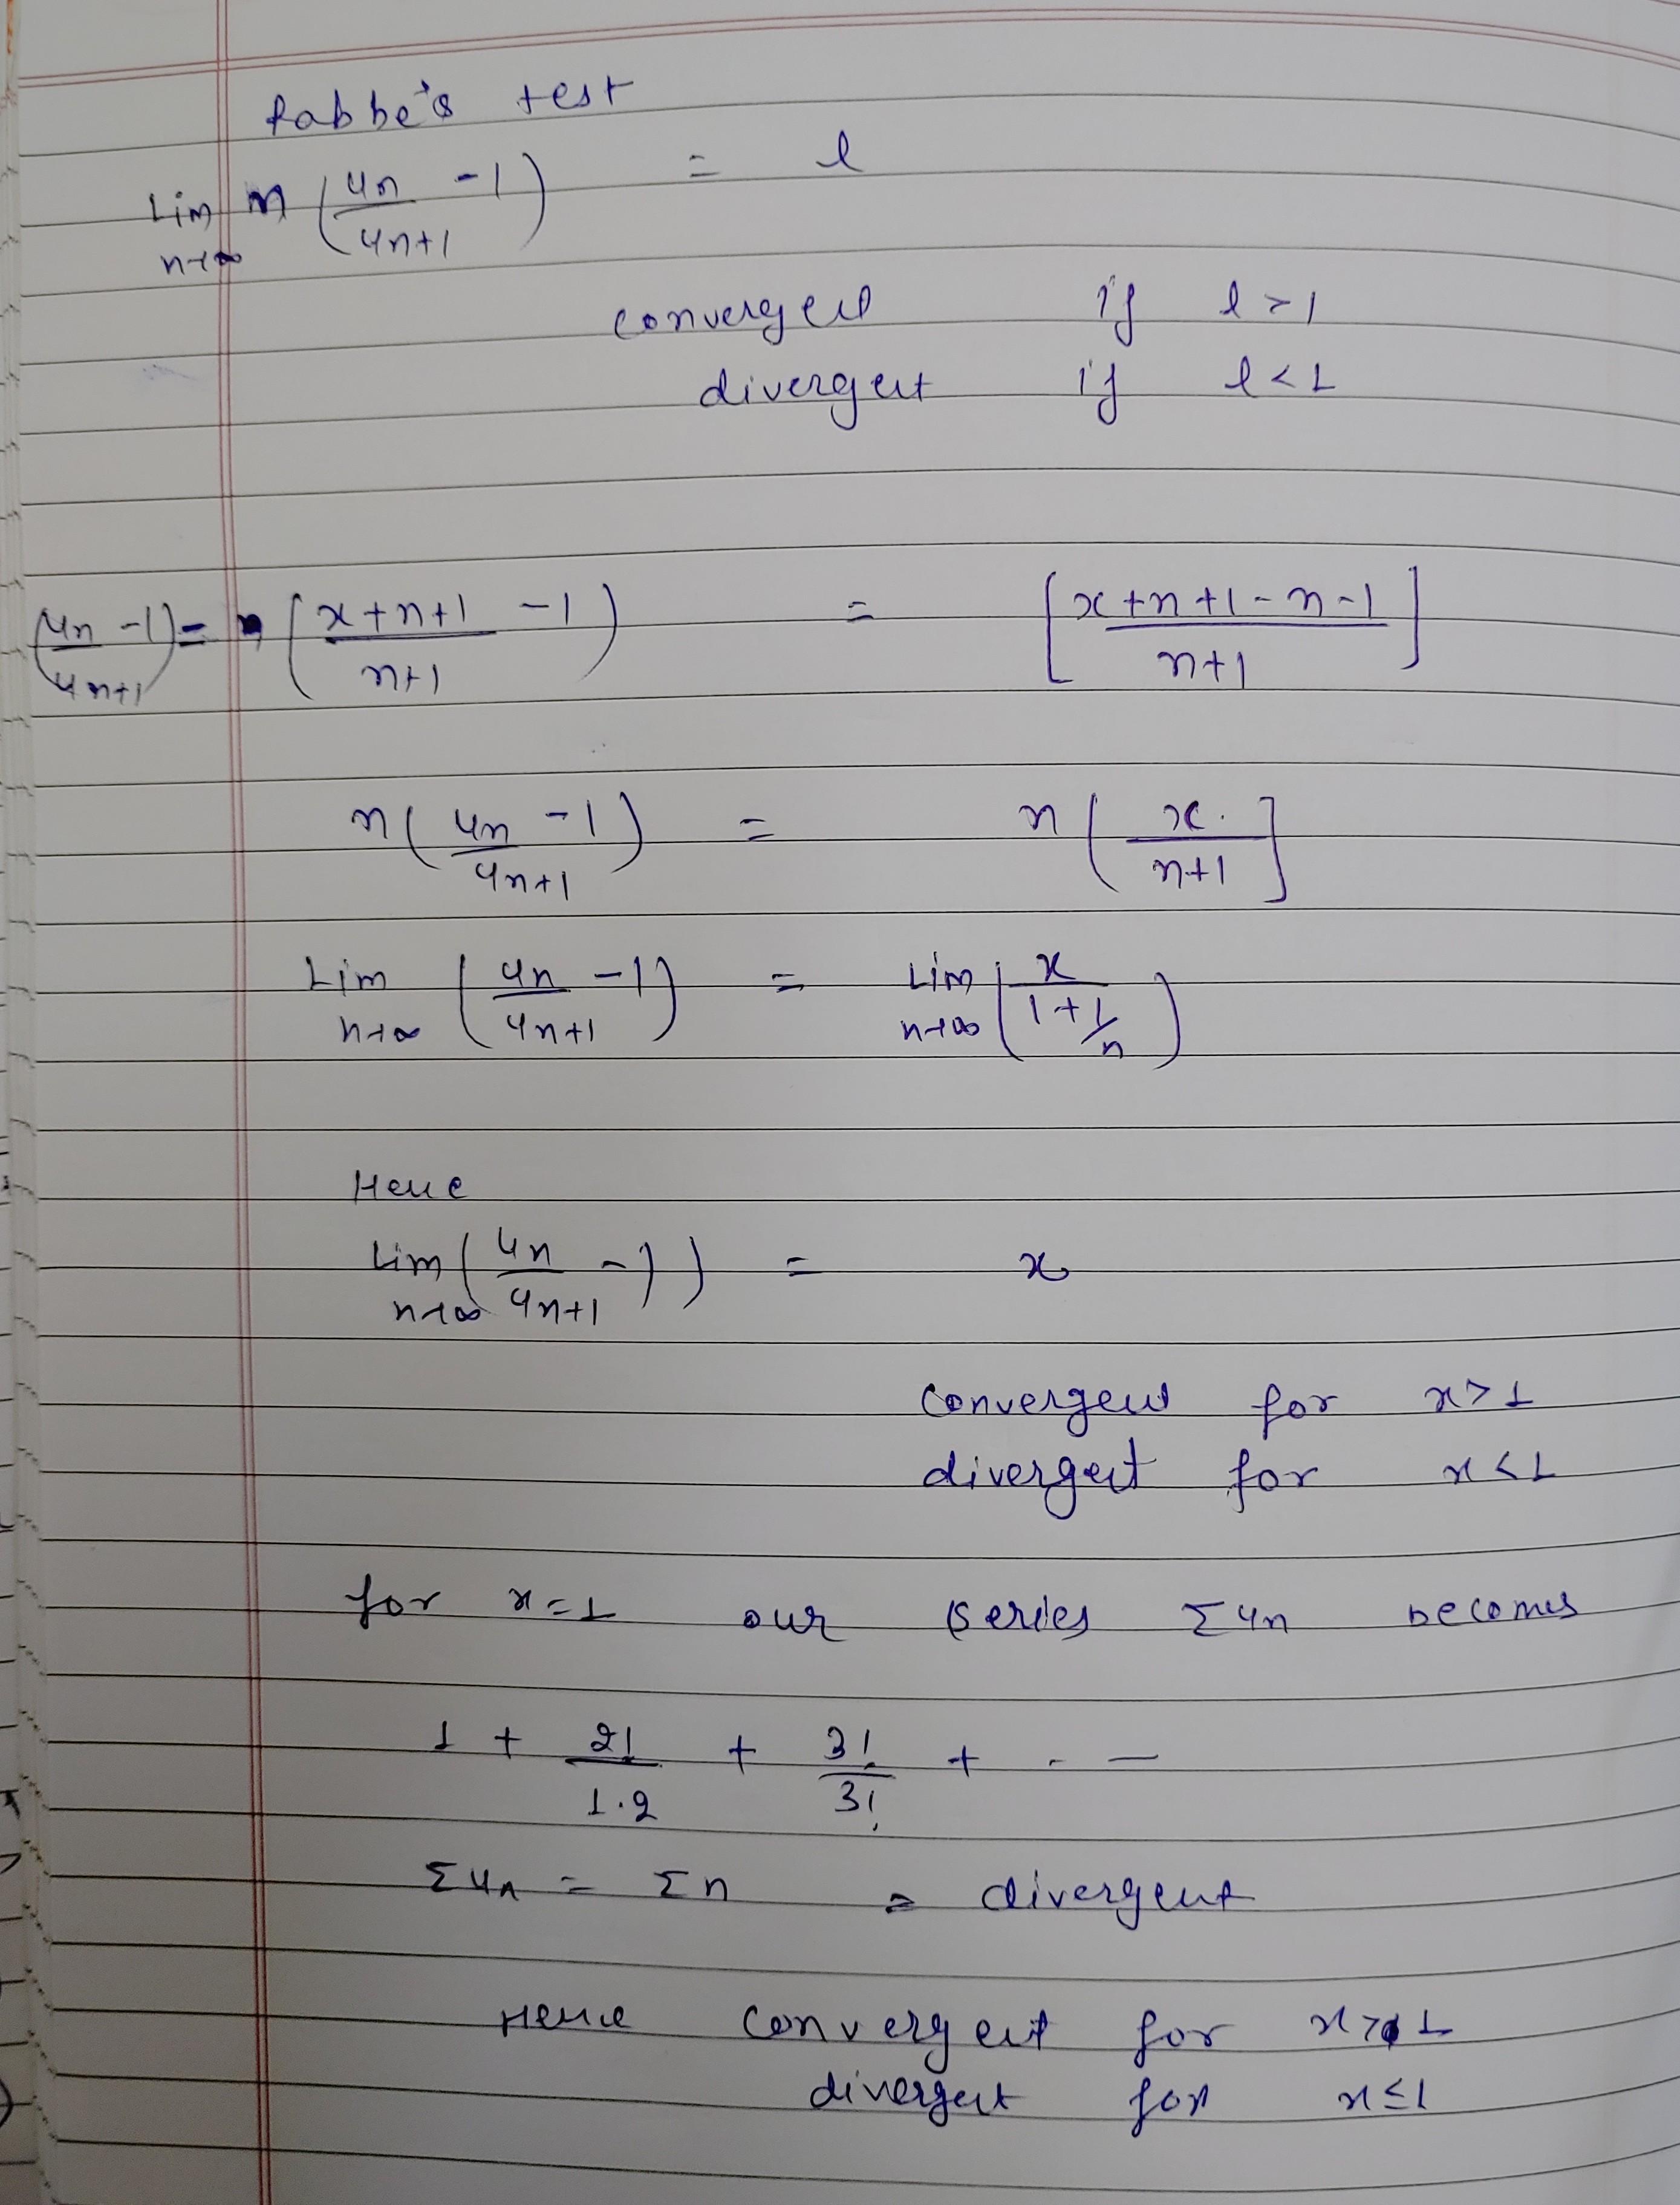 Rabbe's test
Lim n→∞ n (un/un+1 - 1) = l
convergent if l > 1
divergent if l < 1
(un/un+1 - 1) = (x+n+1/n+1 - 1) = [x+n+1-n-1/n+1]
n(un/un+1 - 1) = n(x/n+1]
Lim n→∞ (un/un+1 - 1) = Lim n→∞ (x/1+1/n)
Hence
Lim n→∞ (un/un+1 - 1) = x
convergent for x > 1
divergent for x < 1
for x = 1 our series Σun becomes
1 + 2!/1.2 + 3!/3! + - -
Σun = Σn = divergent
Hence convergent for x > 1
divergent for x ≤ 1